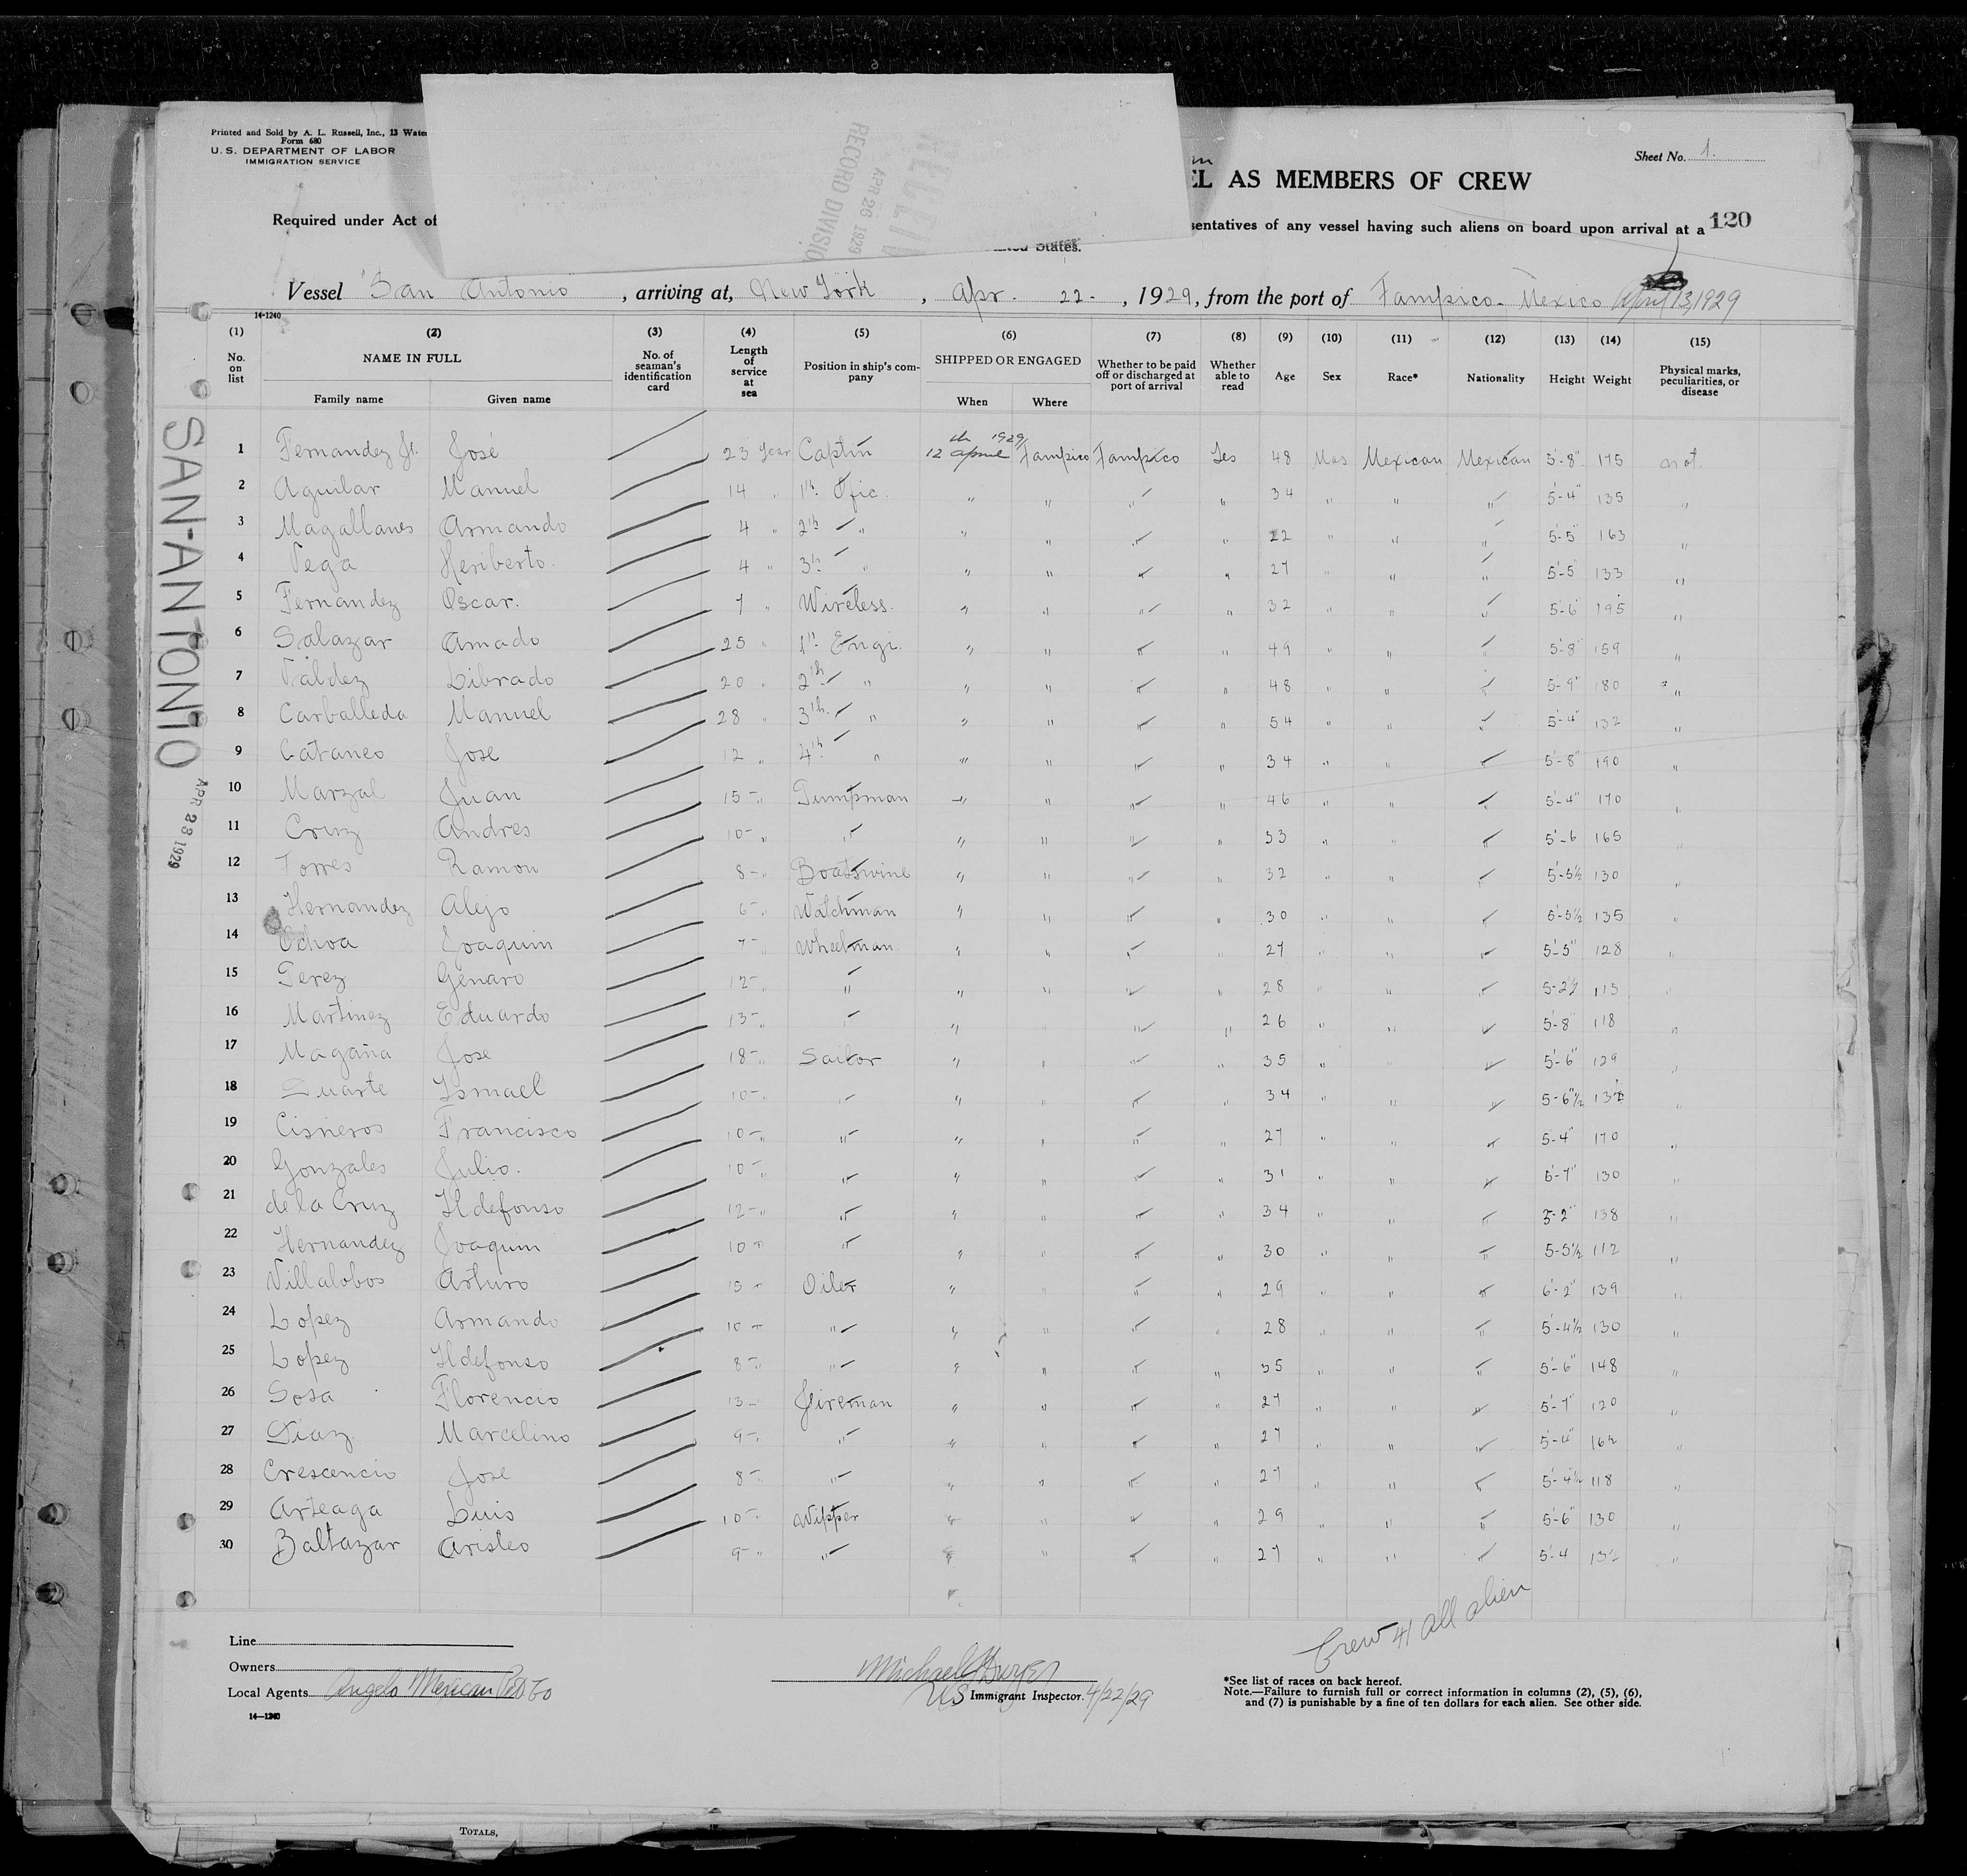 Printed and Sold by A. L. Russell, Inc., 13 Water
Form 680
U. S. DEPARTMENT OF LABOR
IMMIGRATION SERVICE
RECEIV
APR 26 1929
RECORD DIVISIO
Sheet No. 1.
EL AS MEMBERS OF CREW
Required under Act of
sentatives of any vessel having such aliens on board upon arrival at a
120
States.
Vessel "San Antonio", arriving at, New York, Apr. 22-, 1929, from the port of Tampico- Mexico April 13, 1929
14-1240
(1) (2) (3) (4) (5) (6) (7) (8) (9) (10) (11) (12) (13) (14) (15)
No. on list NAME IN FULL No. of seaman's identification card Length of service at sea Position in ship's company SHIPPED OR ENGAGED Whether to be paid off or discharged at port of arrival Whether able to read Age Sex Race* Nationality Height Weight Physical marks, peculiarities, or disease
Family name Given name When Where
SAN-ANTONIO
APR 23 1929
1 Fernandez Jr. José 23 year Captin 12 th April 1929, Tampico Tampico Yes 48 Mas Mexican Mexican 5'-8" 175 not.
2 Aguilar Manuel 14 " 1th Ofic. " " " " 34 " " " 5-4" 135 "
3 Magallanes Armando 4 " 2th " " " " " 22 " " " 5-5 163 "
4 Vega Heriberto. 4 " 3th " " " " " 27 " " " 5'-5 133 "
5 Fernandez Oscar. 7 " Wireless. " " " " 32 " " " 5-6 195 "
6 Salazar Amado 25 " 1th Engi. " " " " 49 " " " 5'-8" 159 "
7 Valdez Librado 20 " 2th " " " " " 48 " " " 5-9" 180 "
8 Carballeda Manuel 28 " 3th " " " " " 54 " " " 5'-4" 132 "
9 Cataneo Jose 12 " 4th " " " " " 34 " " " 5'-8" 190 "
10 Marzal Juan 15 " Pumpman " " " " 46 " " " 5'-4" 170 "
11 Cruz Andres 10 " " " " " " 33 " " " 5'-6 165 "
12 Torres Ramon 8 " Boatswine " " " " 32 " " " 5'-5½ 130 "
13 Hernandez Alejo 6 " Watchman " " " " 30 " " " 5'-5½ 135 "
14 Ochoa Joaquin 7 " Wheelman " " " " 27 " " " 5'-5" 128 "
15 Perez Genaro 12 " " " " " " 28 " " " 5-2½ 115 "
16 Martinez Eduardo 13 " " " " " " 26 " " " 5'-8" 118 "
17 Magaña Jose 18 " Sailor " " " " 35 " " " 5'-6" 129 "
18 Duarte Ismael 10 " " " " " " 34 " " " 5-6"½ "
19 Cisneros Francisco 10 " " " " " " 27 " " " 5-4" 170 "
20 Gonzales Julio. 10 " " " " " " 31 " " " 5'-7" 130 "
21 de la Cruz Ildefonso 12 " " " " " " 34 " " " 5-2" 138 "
22 Hernandez Joaquin 10 " " " " " " 30 " " " 5-5½ 112 "
23 Villalobos Arturo 15 " Oiler " " " " 29 " " " 6'-2" 139 "
24 Lopez Armando 10 " " " " " " 28 " " " 5'-4½ 130 "
25 Lopez Ildefonso 8 " " " " " " 35 " " " 5'-6" 148 "
26 Sosa Florencio 13 " Fireman " " " " 27 " " " 5'-7" 120 "
27 Diaz Marcelino 9 " " " " " " 27 " " " 5'-4" 162 "
28 Crescencio Jose 8 " " " " " " 27 " " " 5'-4½ 118 "
29 Arteaga Luis 10 " Wipper " " " " 29 " " " 5-6" 130 "
30 Baltazar Aristeo 9 " " " " " " 27 " " " 5'-4 132 "
Crew 41 all alien
Line
Owners
Local Agents Angelo Mexican Pet Co
14—1240
Michael Dwyer
US Immigrant Inspector. 4/22/29
*See list of races on back hereof.
Note.—Failure to furnish full or correct information in columns (2), (5), (6),
and (7) is punishable by a fine of ten dollars for each alien. See other side.
TOTALS,